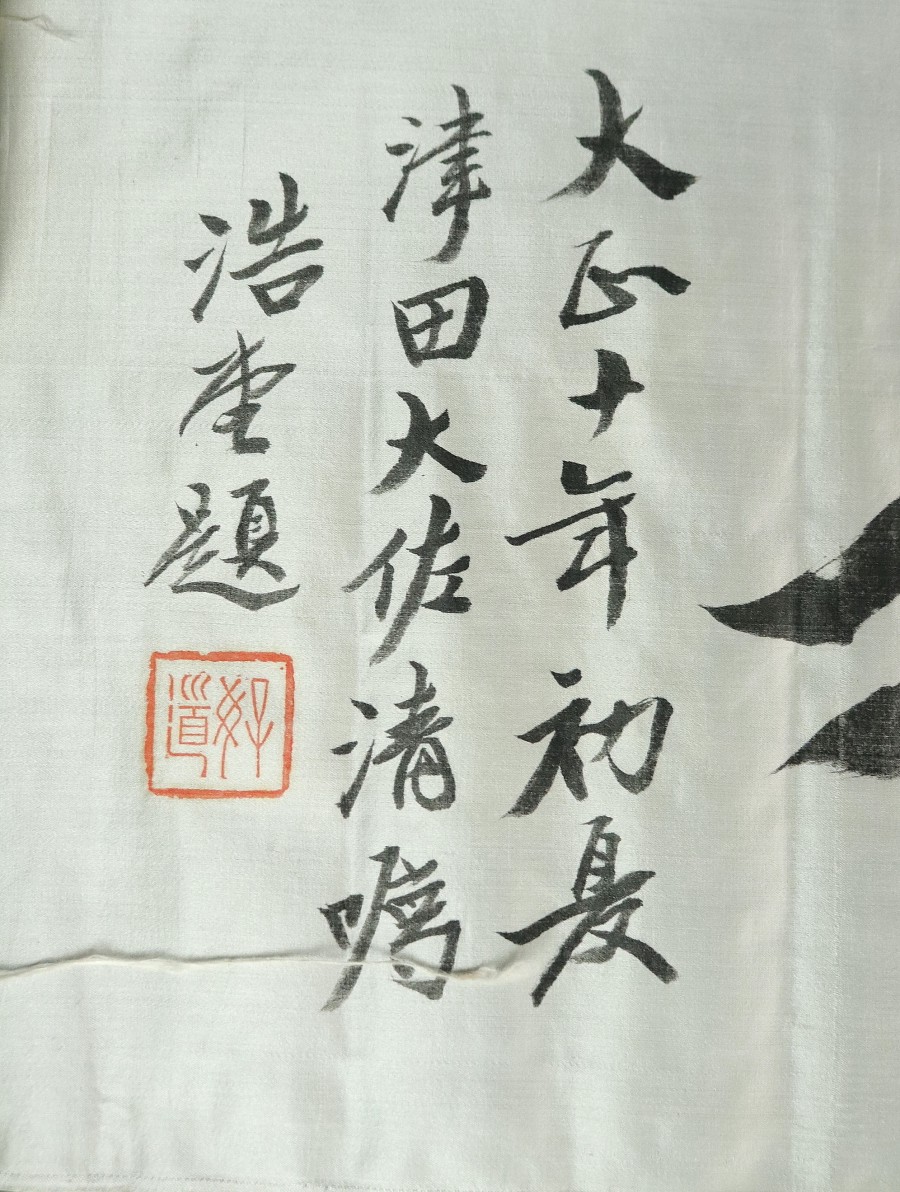 大正十年初夏
津田大佐清嘱
浩堂題
好道